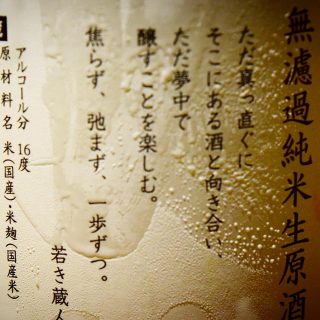 無濾過純米生原酒
ただ真っ直ぐに
そこにある酒と向き合い、
ただ夢中で
醸すことを楽しむ。
焦らず、弛まず、一歩ずつ。
若き蔵人
アルコール分 16度
原材料名 米(国産)・米麹(国産米)